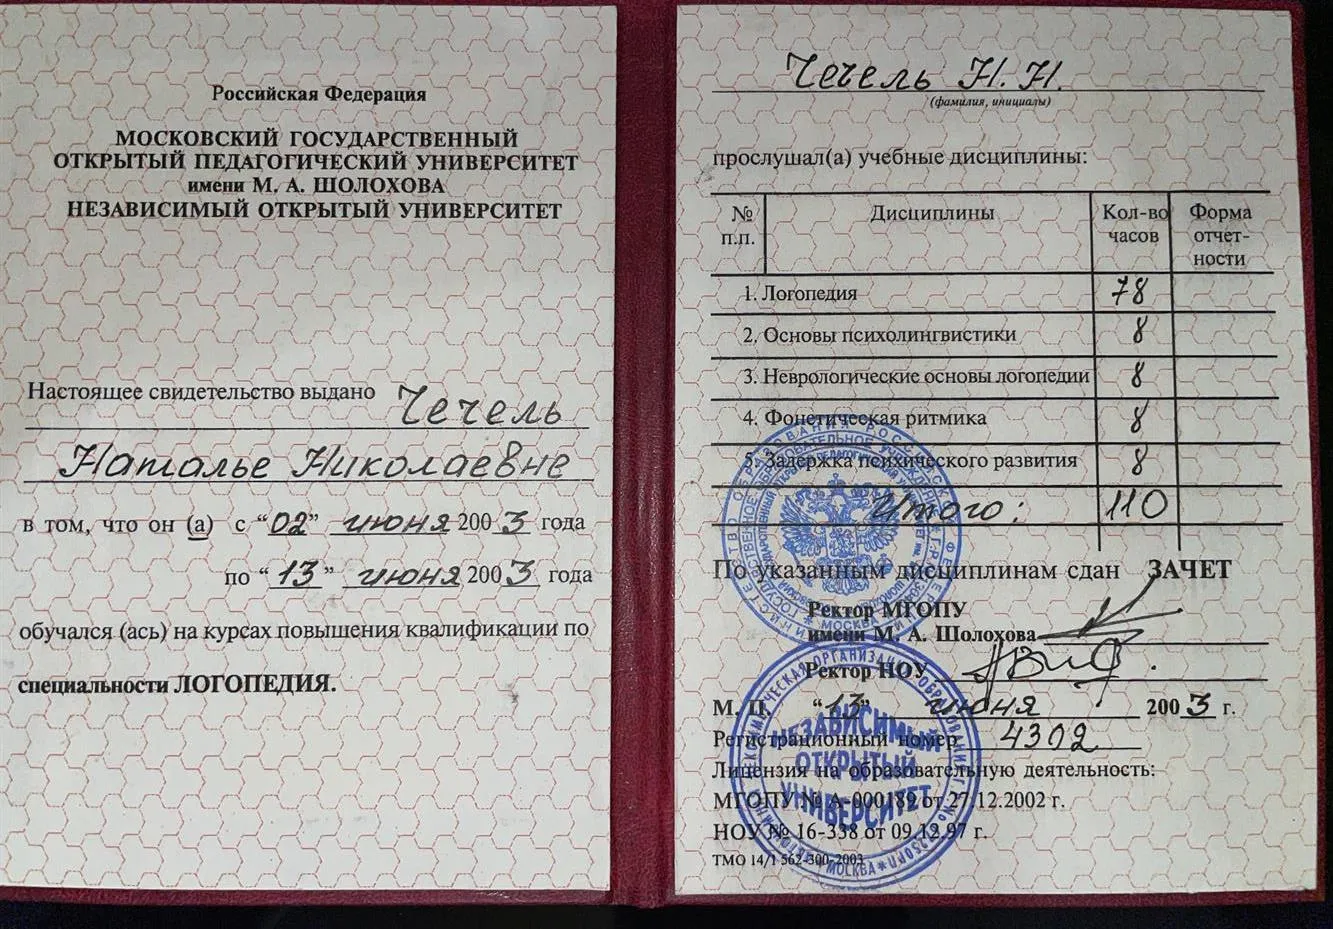 Российская Федерация
МОСКОВСКИЙ ГОСУДАРСТВЕННЫЙ
ОТКРЫТЫЙ ПЕДАГОГИЧЕСКИЙ УНИВЕРСИТЕТ
имени М. А. ШОЛОХОВА
НЕЗАВИСИМЫЙ ОТКРЫТЫЙ УНИВЕРСИТЕТ
Настоящее свидетельство выдано Чечель
Наталье Николаевне
в том, что он (а) с “02” июня 2003 года
по “13” июня 2003 года
обучался (ась) на курсах повышения квалификации по
специальности ЛОГОПЕДИЯ.
Чечель Н. Н.
(фамилия, инициалы)
прослушал(а) учебные дисциплины:
№ п.п. Дисциплины Кол-во часов Форма отчет-ности
1. Логопедия 78
2. Основы психолингвистики 8
3. Неврологические основы логопедии 8
4. Фонетическая ритмика 8
5. Задержка психического развития 8
Итого: 110
По указанным дисциплинам сдан ЗАЧЕТ
Ректор МГОПУ
имени М. А. Шолохова
Ректор НОУ
М. П. “13” июня 2003 г.
Регистрационный номер 4302
Лицензия на образовательную деятельность:
МГОПУ № А-000189 от 27.12.2002 г.
НОУ № 16-338 от 09.12.97 г.
ТМО 14/1 562-300-2003
НЕЗАВИСИМЫЙ
ОТКРЫТЫЙ
УНИВЕРСИТЕТ
МОСКВА